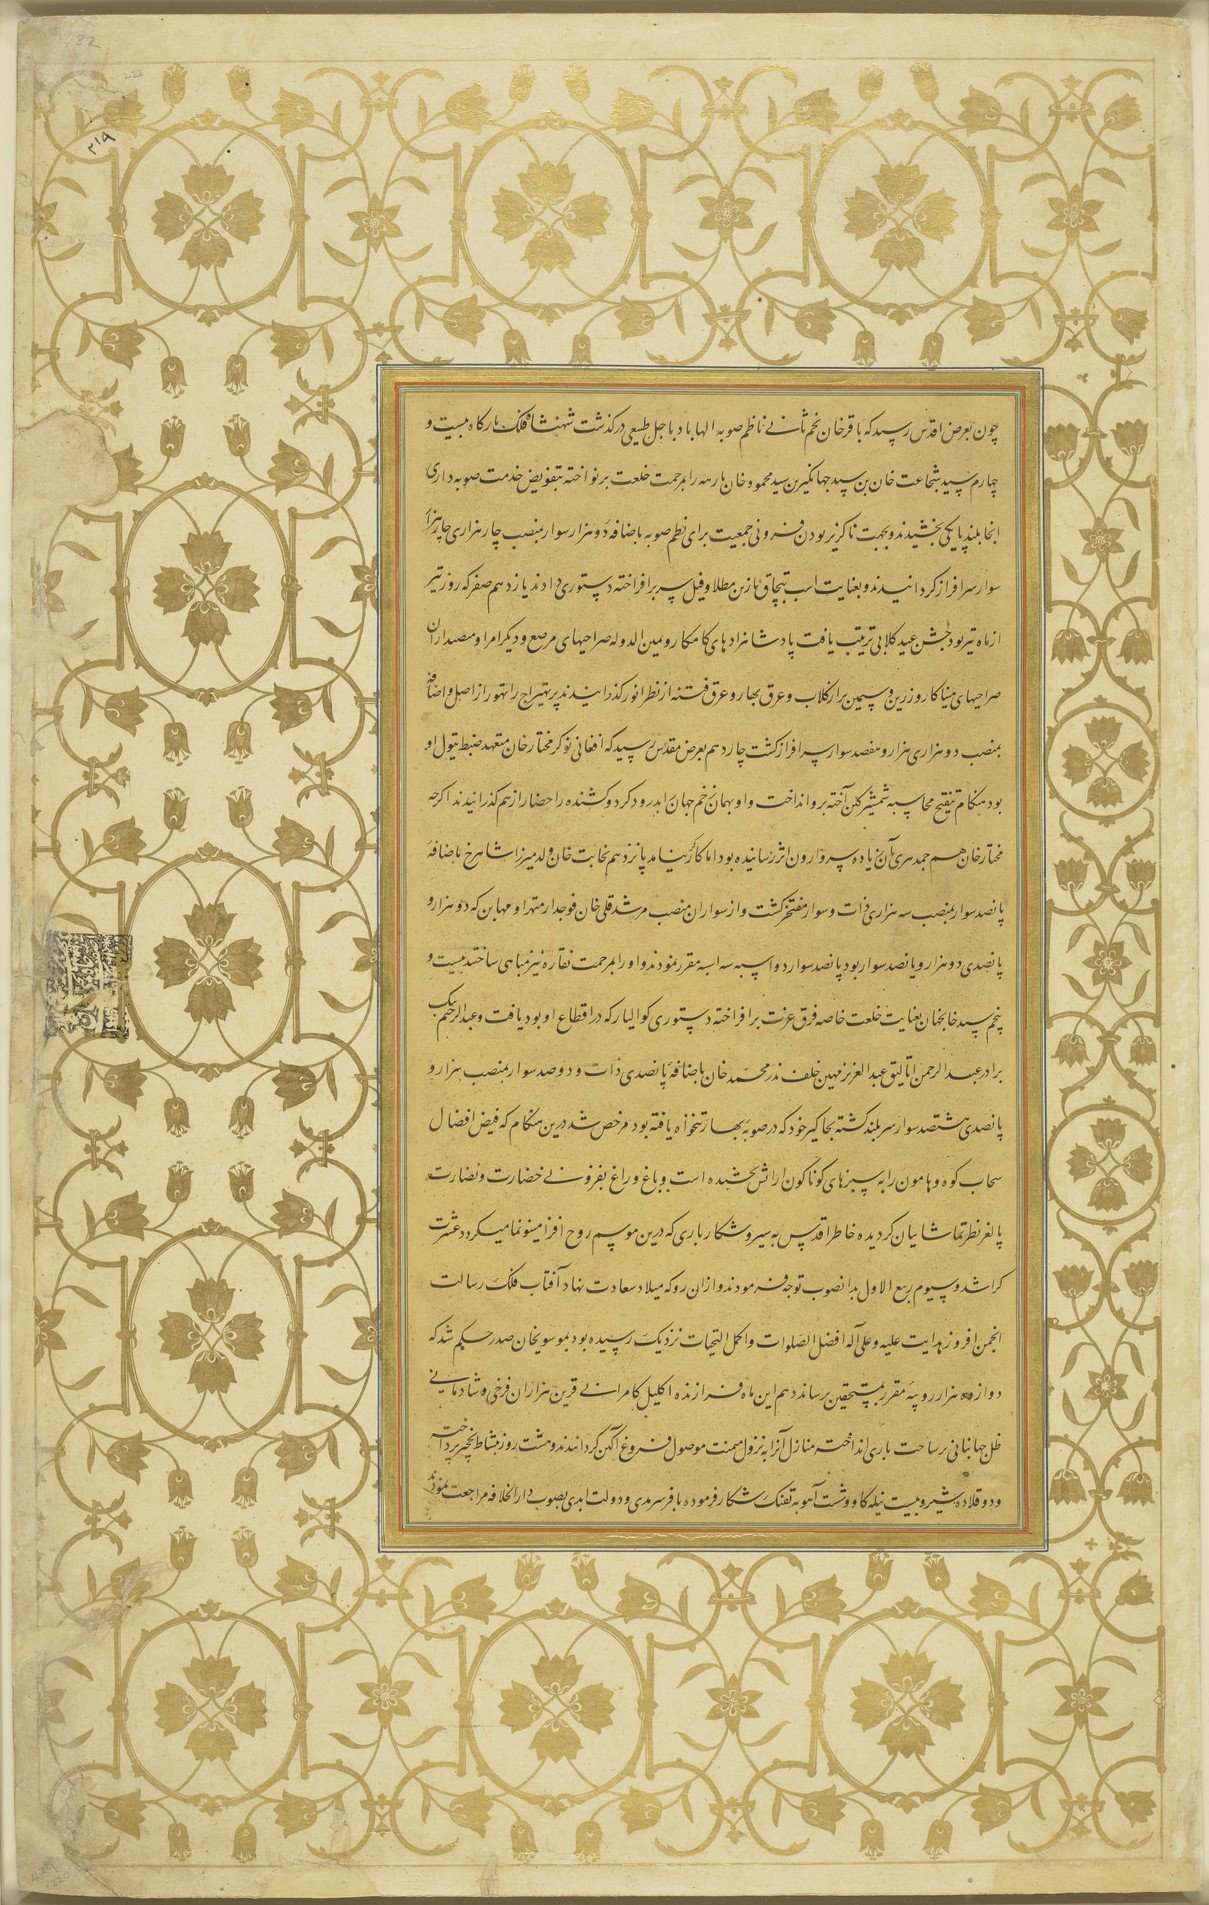 ۲۱۹
چون بعرض اقدس رسید که باقر خان نجم ثانی ناظم صوبه الهاباد باجل طبیعی درگذشت شهنشاه فلک بارگاه بیست و
چهارم سید شجاعت خان بن سید جهانگیر بن سید محمود خان بارهه را بمرحمت خلعت بر نواخته بتفویض خدمت صوبه داری
انجا بلند پایگی بخشیدند و بجهت ناگزیر بودن فزونی جمعیت برای نظم صوبه باضافهٔ دو هزار سوار بمنصب چار هزاری چار هزار
سوار سرافراز گردانیدند و بعنایت اسب تپچاق بازین مطلا و فیل سر برافراخته دستوری دادند یازدهم صفر که روز تیر
از ماه تیر بود جشن عید گلابی ترتیب یافت پادشاهزادهای کامگار و یمین الدوله صراحیهای مرصع و دیگر امرا و منصبداران
صراحیهای میناکار و زرین و سیمین پر از گلاب و عرق بهار و عرق فتنه از نظر انور گذرانیدند پرتهیراج راتهور از اصل و اضافه
بمنصب دو هزاری هزار و هفصد سوار سرافراز گشت چاردهم بعرض مقدس رسید که افغانی نوکر مختار خان متعهد ضبط تیول او
بود هنگام تنقیح محاسبه شمشیر کین آخته برو انداخت و او بهمان زخم جهان را بدرود کرد و کشنده را حضار از هم گذرانیدند اگرچه
مختار خان هم جمدهری بآن زیاده سر وارون اثر رسانیده بود اما کارگر نیامد پانزدهم نجابت خان ولد میرزا شاهرخ باضافهٔ
پانصد سوار بمنصب سه هزاری ذات و سوار مفتخر گشت و از سواران منصب مرشد قلی خان فوجدار متهرا و مهابن که دو هزار و
پانصدی دو هزار و پانصد سوار بود پانصد سوار دو اسپه سه اسپه مقرر نمودند و او را بمرحمت نقاره نیز مباهی ساختند بیست و
پنجم سید خانجهان بعنایت خلعت خاصه فرق عزت برافراخته دستوری گوالیار که در اقطاع او بود یافت و عبدالرحیم بیگ
برادر عبدالرحمن اتالیق عبدالعزیز مهین خلف نذر محمد خان باضافهٔ پانصدی ذات و دوصد سوار بمنصب هزار و
پانصدی هشتصد سوار سربلند گشته بجاگیر خود که در صوبهٔ بهار تنخواه یافته بود مرخص شد درین هنگام که فیض افضال
سحاب کوه و هامون را به سبزهای گوناگون ارایش بخشیده است و باغ و راغ بفزونی خضارت و نضارت
پالغز نظر تماشاییان گردیده خاطر اقدس به سیر و شکار باری که درین موسم روح افزا مینو نما میگردد عشرت
گرا شد و سیوم ربیع الاول بدانصوب توجه فرمودند و ازان رو که میلاد سعادت نهاد آفتاب فلک رسالت
انجمن افروز هدایت علیه و علی آله افضل الصلوات و اکمل التحیات نزدیک رسیده بود بموسویخان صدر حکم شد که
دوازده هزار روپیه مقرر بمستحقین برساند دهم این ماه فرازنده اکلیل کامرانی قرین هزاران فرخی و شادمانی
ظل جهانبانی بر ساحت باری انداخته منازل آنرا به نزول میمنت موصول فروغ آگین گردانیدند و هشت روز بنشاط نخچیر پرداخته
و دو قلاده شیر و بیست نیله گاو و شست آهو به تفنگ شکار فرموده بافر سرمدی و دولت ابدی بصوب دارالخلافه مراجعت نمودند